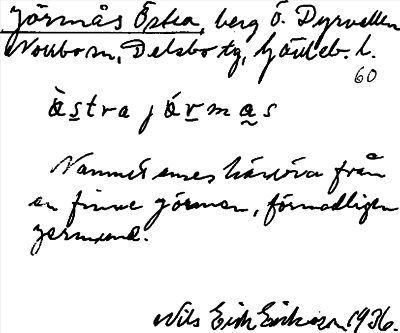 Jörmås Östra, berg Ö. Dyrvallen
Norrbom, Delsbo tg, Gävleb. l.
60
àstra jórmas
Namnet anses härröra från
en finne görman, förmodligen
germund.
Nils Erik Eriksson 1936.